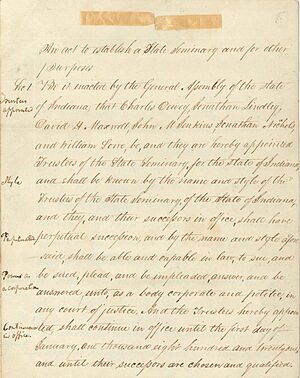 An act to establish a State Seminary and for other
purposes
Sec 1 Be it enacted by the General Assembly of the State
Trustees
appointed
of Indiana, that Charles Dewey, Jonathan Lindley,
David H. Maxwell, John M Jenkins Jonathan Nichols
and William Lowe be, and they are hereby appointed
Trustees of the State Seminary, for the State of Indiana,
Style
and shall be known by the name and style of the
Trustees of the State Seminary, of the State of Indiana
and they, and their successors in office, shall have
perpetual succession, and by the name and style afore
said, shall be able and capable in law, to sue, and
Powers as
a corporation
be sued, plead, and be impleaded, answer, and be
answered unto, as a body corporate and politic, in
any court of justice. And the Trustees hereby appoin
Continuance
in office
ted, shall continue in office until the first day of
January, one thousand eight hundred and twenty one,
and until their successors are chosen and qualified.